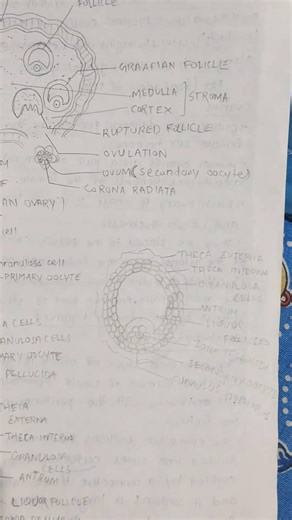 FOLLICLE
GRAAFIAN FOLICLE
MEDULLA
STROMA
CORTEX
RUPTURED FOLLICLE
OVULATION
OVUM (secondary oocyte)
CORONA RADIATA
AN OVARY)
cell
THECA EXTERNA
granulosa cell
THECA INTERNA
PRIMARY OOCYTE
GRANULOSA
CELLS
ANTRUM
A CELLS
ANULOSA CELLS
MARY OOCYTE
PELLUCIDA
THECA
EXTERNA
THECA INTERNA
GRANULOSA
CELLS
ANTRUM
LIQUR FOLICLE